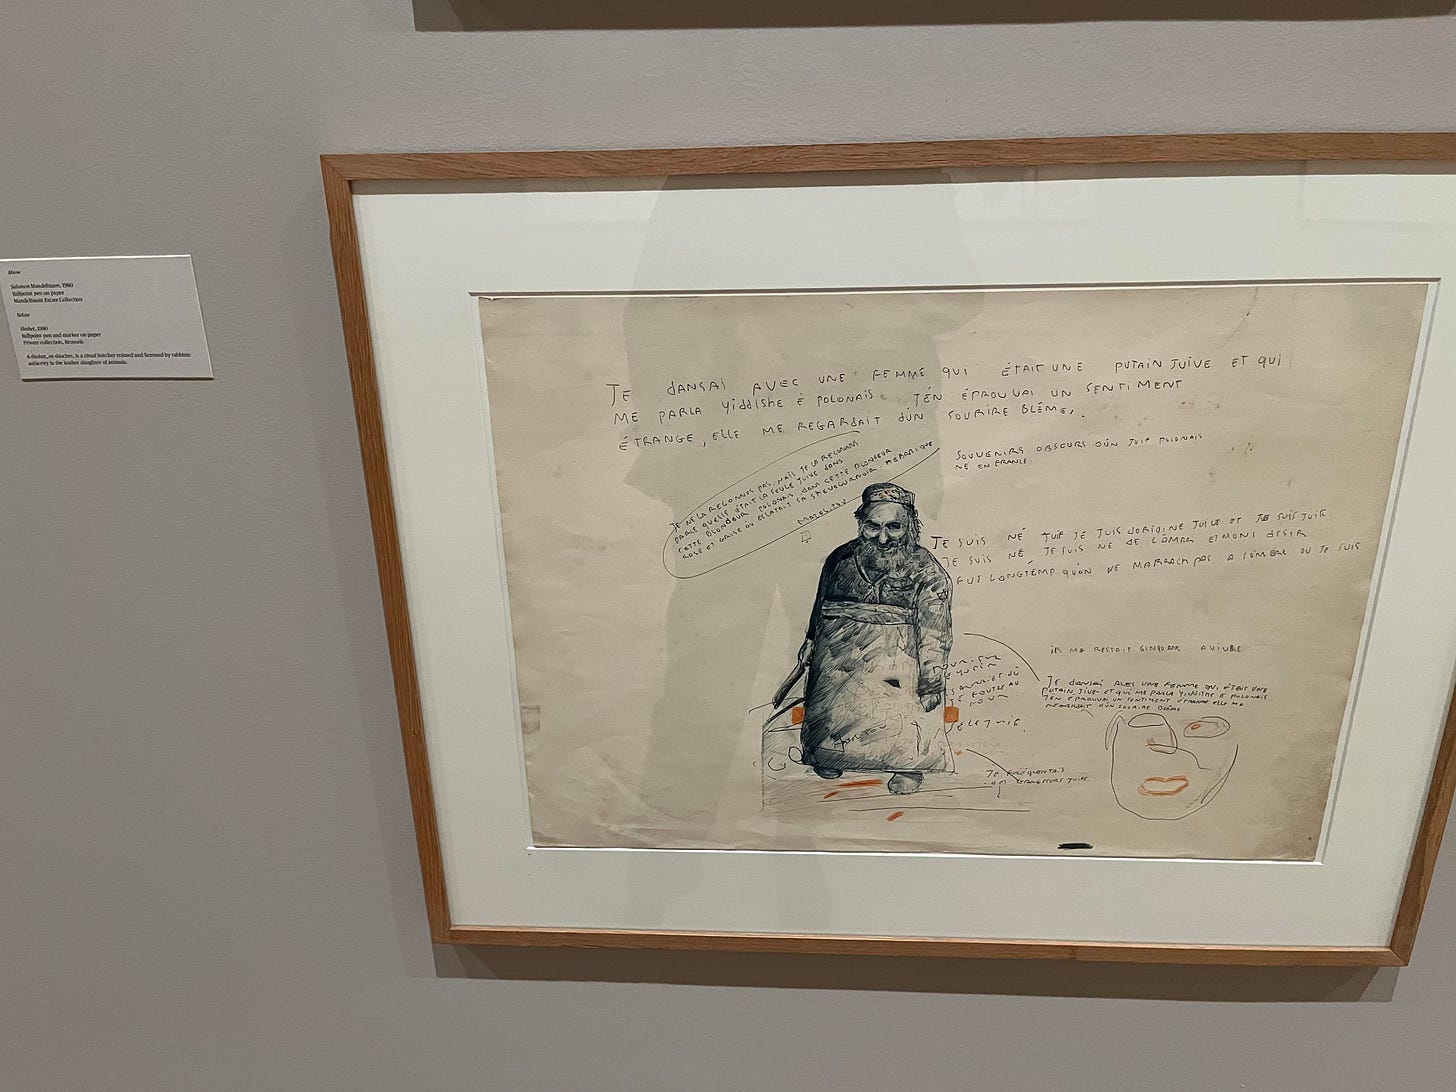 Above
Salomon Mandelbaum, 1960
Ballpoint pen on paper
Mandelbaum Estate Collection
Below
Shohet, 1980
Ballpoint pen and marker on paper
Private collection, Brussels
A shohet, or shochet, is a ritual butcher trained and licensed by rabbinic
authority in the kosher slaughter of animals.
JE DANSAI AVEC UNE FEMME QUI ÉTAIT UNE PUTAIN JUIVE ET QUI
ME PARLA YiddisHE É POLONAIS. JÉN ÉPROUVAI UN SENTIMENT
ÉTRANGE, ELLE ME REGARDAIT DÚN SOURIRE BLÉME,.
JE NE LA RECONNUS PAS, MAIS JE LA RECONNUS
PARCE QUELLE ÉTAIT LA SEULE JUIVE DANS
CETTE BLONDEUR POLONAIS, DANS CETTE BLONDEUR
ROSE ET GRISE OU ECLATAIT SA
MAZEL TOV
SOUVENIRS OBSCURS DÚN JUIF POLONAIS
NÉ EN FRANCE
JE SUIS NÉ JUIF JE SUIS DORIGINE JUIVE ET JE SUIS JUIF
JE SUIS NÉ JE SUIS NÉ DE LOMBRE ET MON DESIR
FUT LONGTEMP QUON NE PAS A LOMBRE OU JE SUIS
ME RESTAIT A VIVRE.
JE DANSAI AVEC UNE FEMME QUI ÉTAIT UNE
PUTAIN JUIVE ET QUI ME PARLA YIDDISHE É POLONAIS
JEN EPROUVAI UN SENTIMENT ETRANGE ELLE ME
REGARDAIT DÚN SOURIRE BLÉME
OÙ
JE AU
LE JUIF.
JE FREQUENTAIS
JUIFS